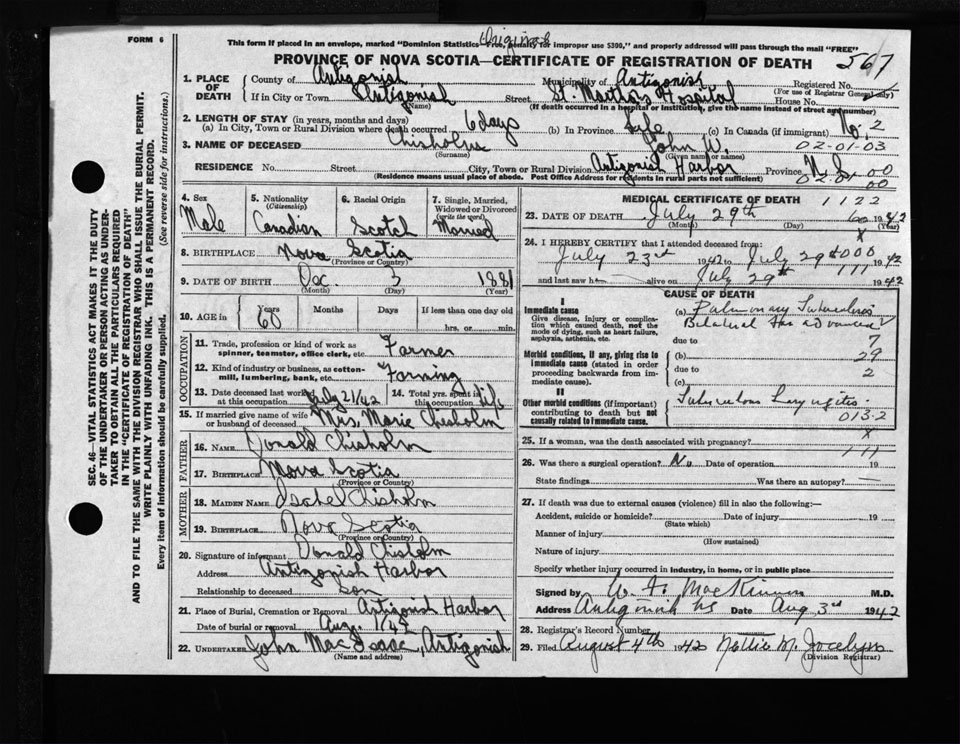 FORM 6
Original
This form if placed in an envelope, marked "Dominion Statistics Free, penalty for improper use $300," and properly addressed will pass through the mail "FREE"
PROVINCE OF NOVA SCOTIA—CERTIFICATE OF REGISTRATION OF DEATH
567
1. PLACE OF DEATH
County of Antigonish Municipality of Antigonish Registered No.
(For use of Registrar General only)
If in City or Town Antigonish Street St. Martha's Hospital House No.
(Name) (If death occurred in a hospital or institution, give the name instead of street and number)
2. LENGTH OF STAY (in years, months and days)
(a) In City, Town or Rural Division where death occurred 6 days (b) In Province Life (c) In Canada (if immigrant)
3. NAME OF DECEASED Chisholm John W.
(Surname) (Given name or names)
02-01-03
RESIDENCE No. Street City, Town or Rural Division Antigonish Harbor Province N.S.
(Residence means usual place of abode. Post Office Address for residents in rural parts not sufficient)
4. Sex Male
5. Nationality (Citizenship) Canadian
6. Racial Origin Scotch
7. Single, Married, Widowed or Divorced (write the word) Married
8. BIRTHPLACE Nova Scotia
(Province or Country)
9. DATE OF BIRTH Dec. 3 1881
(Month) (Day) (Year)
10. AGE in Years Months Days If less than one day old
60 hrs. or min.
OCCUPATION
11. Trade, profession or kind of work as spinner, teamster, office clerk, etc. Farmer
12. Kind of industry or business, as cotton-mill, lumbering, bank, etc. Farming
13. Date deceased last worked at this occupation July 21/42
14. Total yrs. spent in this occupation Life
15. If married give name of wife or husband of deceased Mrs. Marie Chisholm
FATHER
16. NAME Donald Chisholm
17. BIRTHPLACE Nova Scotia
(Province or Country)
MOTHER
18. MAIDEN NAME Isabel Chisholm
19. BIRTHPLACE Nova Scotia
(Province or Country)
20. Signature of informant Donald Chisholm
Address Antigonish Harbor
Relationship to deceased son
21. Place of Burial, Cremation or Removal Antigonish Harbor
Date of burial or removal Aug. 1/42
22. UNDERTAKER John MacIsaac, Antigonish
(Name and address)
MEDICAL CERTIFICATE OF DEATH
1122
23. DATE OF DEATH July 29th 1942
(Month) (Day) (Year)
60
X
24. I HEREBY CERTIFY that I attended deceased from:
July 23rd 1942 to July 29th 1942
000
111
and last saw h alive on July 29th 1942
CAUSE OF DEATH
I
Immediate cause
Give disease, injury or complication which caused death, not the mode of dying, such as heart failure, asphyxia, asthenia, etc.
(a) Pulmonary Tuberculosis
Bilateral Far advanced
due to 7
Morbid conditions, if any, giving rise to immediate cause (stated in order proceeding backwards from immediate cause).
(b) 29
due to 2
(c)
II
Other morbid conditions (if important) contributing to death but not causally related to immediate cause.
Tuberculous Laryngitis
013-2
X
25. If a woman, was the death associated with pregnancy? 111
26. Was there a surgical operation? No Date of operation 19
State findings Was there an autopsy?
27. If death was due to external causes (violence) fill in also the following:
Accident, suicide or homicide? Date of injury 19
(State which)
Manner of injury
(How sustained)
Nature of injury
Specify whether injury occurred in industry, in home, or in public place
Signed by W. F. MacKinnon M.D.
Address Antigonish NS Date Aug 3rd 1942
28. Registrar's Record Number
29. Filed August 4th 1942 Nellie M. Jocelyn
(Division Registrar)
SEC. 46—VITAL STATISTICS ACT MAKES IT THE DUTY
OF THE UNDERTAKER OR PERSON ACTING AS UNDER-
TAKER TO OBTAIN ALL THE PARTICULARS REQUIRED
IN THE "CERTIFICATE OF REGISTRATION OF DEATH"
AND TO FILE THE SAME WITH THE DIVISION REGISTRAR WHO SHALL ISSUE THE BURIAL PERMIT.
WRITE PLAINLY WITH UNFADING INK. THIS IS A PERMANENT RECORD.
Every item of information should be carefully supplied. (See reverse side for instructions.)